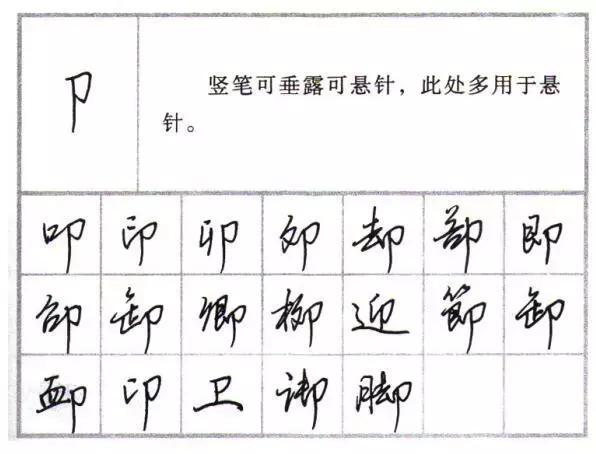 卩
竖笔可垂露可悬针，此处多用于悬
针。
叩 印 卯 夘 却 即
卸 卿 柳 迎 節 卸
卹 印 卫 脚